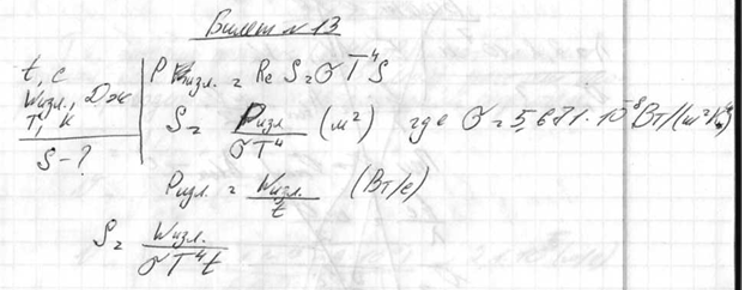 Билет N 13
t, с
Wизл., Дж
T, К
S - ?
Pизл. = Re S = σ T⁴ S
S = Pизл / σT⁴ (м²) где σ = 5,671 · 10⁻⁸ Вт/(м²К⁴)
Pизл. = Wизл. / t (Вт/с)
S = Wизл. / σT⁴t